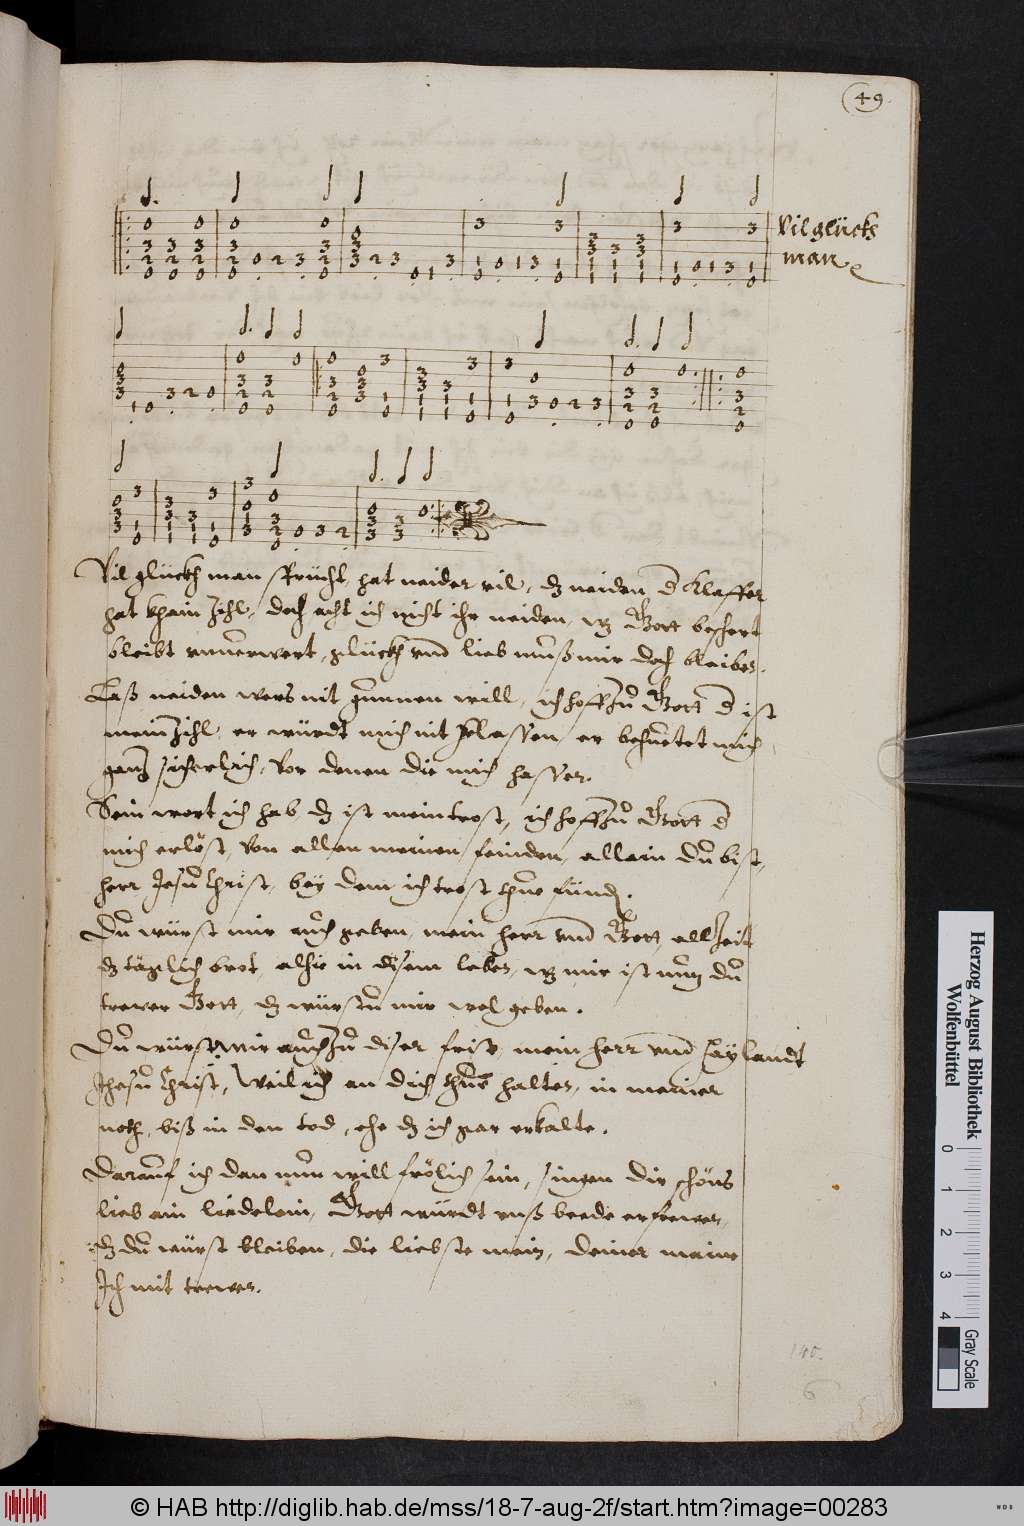 49.
Vil glücks
man
Vil glückh man spricht, hat neider vil, dz neiden d Klaffer
hat khain zihl, doch acht ich nicht ihr neiden, wz Gott beschert
bleibt unnerwert, glückh und lieb muß mir doch bleiben.
Laß neiden wers nit gunnen will, ich hoff zu Gott d ist
mein zihl, er würdt mich nit verlassen er behuetet mich
gantz sicherlich, vor denen die mich hassen.
Sein wort ich hab dz ist mein trost, ich hoff zu Gott d
mich erlöst, von allen meinen feinden, allein du bist,
herr Jesu Christ, bey dem ich trost thue finden.
Du würst mir auch geben, mein herr und Gott allzeit
dz täglich brot, alhie in disem leben, wz mir ist nutz du
trewer Gott, dz würstu mir wol geben.
Du würst mir auch zu diser frist, mein herr und Haylandt
Jhesu Christ, Weil ich an dich thue halten, in meiner
noth, biß in den tod, ehe dz ich gar erkalte.
Darauf ich dan nun will frölich sein, singen dir schöns
lieb ein liedelein, Gott würdt unß beede erfrewen,
dz du würst bleiben, die liebste mein, deiner maine
Ich mit trewen.
140.
6
Herzog August Bibliothek
Wolfenbüttel
0 1 2 3 4 Gray Scale
© HAB http://diglib.hab.de/mss/18-7-aug-2f/start.htm?image=00283